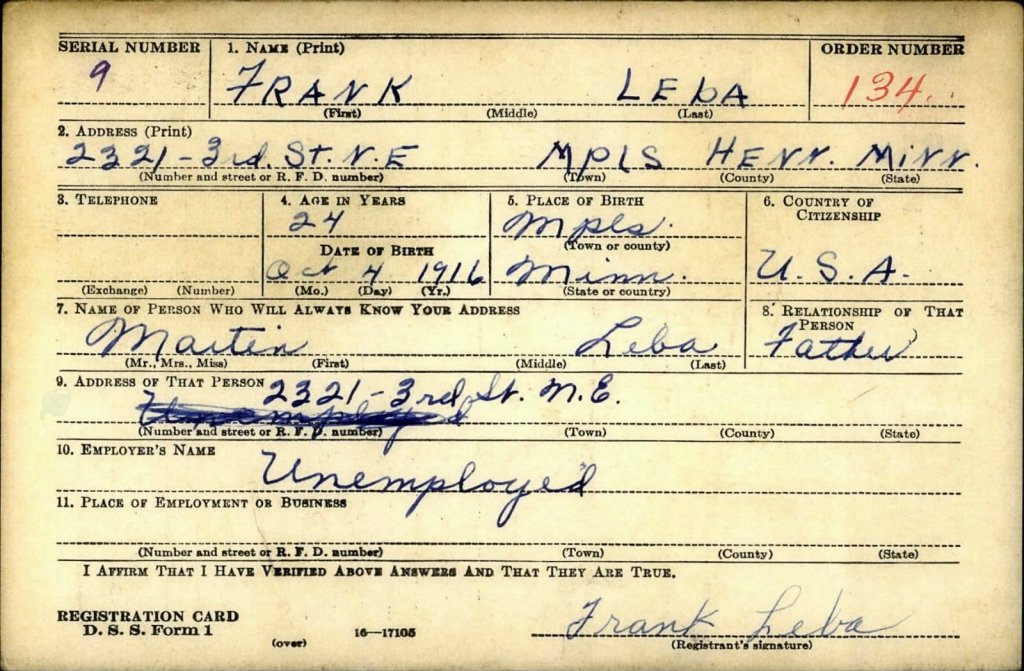 SERIAL NUMBER 1. NAME (Print) ORDER NUMBER
9 FRANK LEbA 134.
(First) (Middle) (Last)
2. ADDRESS (Print)
2321 - 3rd. St. N.E MPLS HENN. MINN.
(Number and street or R. F. D. number) (Town) (County) (State)
3. TELEPHONE 4. AGE IN YEARS 5. PLACE OF BIRTH 6. COUNTRY OF CITIZENSHIP
24 Mpls.
DATE OF BIRTH (Town or county)
Oct 4 1916 Minn. U. S. A.
(Exchange) (Number) (Mo.) (Day) (Yr.) (State or country)
7. NAME OF PERSON WHO WILL ALWAYS KNOW YOUR ADDRESS 8. RELATIONSHIP OF THAT PERSON
Martin Leba Father
(Mr., Mrs., Miss) (First) (Middle) (Last)
9. ADDRESS OF THAT PERSON 2321 - 3rd St. N.E.
Unemployed
(Number and street or R. F. D. number) (Town) (County) (State)
10. EMPLOYER'S NAME
Unemployed
11. PLACE OF EMPLOYMENT OR BUSINESS
(Number and street or R. F. D. number) (Town) (County) (State)
I AFFIRM THAT I HAVE VERIFIED ABOVE ANSWERS AND THAT THEY ARE TRUE.
REGISTRATION CARD Frank Leba
D. S. S. Form 1 (over) 16—17105 (Registrant's signature)